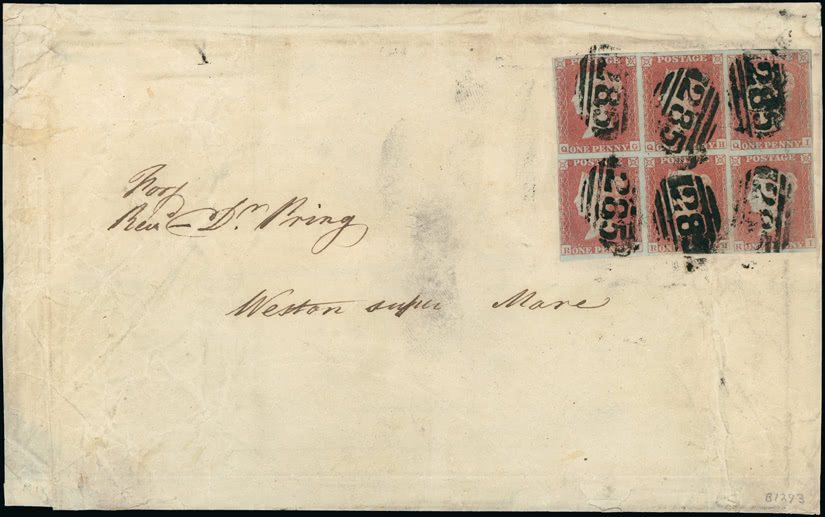 POSTAGE POSTAGE POSTAGE
285 285 285
Q ONE PENNY G Q ONE PENNY H Q ONE PENNY I
POSTAGE POSTAGE POSTAGE
285 285 285
R ONE PENNY G R ONE PENNY H R ONE PENNY I
Revd Dr. Pring
Weston super Mare
B1393